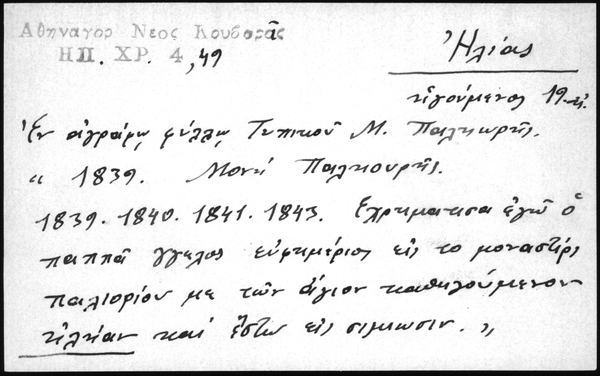 Αθηναγορ Νεος Κουβαρᾶς
ΗΠ. ΧΡ. 4, 49
Ἠλίας
ἡγούμενος 19
Ἐν ἀγράφῳ φύλλῳ Τυπικοῦ Μ. Παλιουρῆς.
“ 1839. Μονὴ Παλιουρῆς.
1839. 1840. 1841. 1843. Ἐχρημάτισα ἐγὼ ὁ
παππᾶ γγελος εὐφημέριος εἰς το μοναστίρι
παλιορίου με τῶν ἅγιον καθηγούμενον
ηλήαν καὶ ἔστω εἰς σιμιωσιν. „